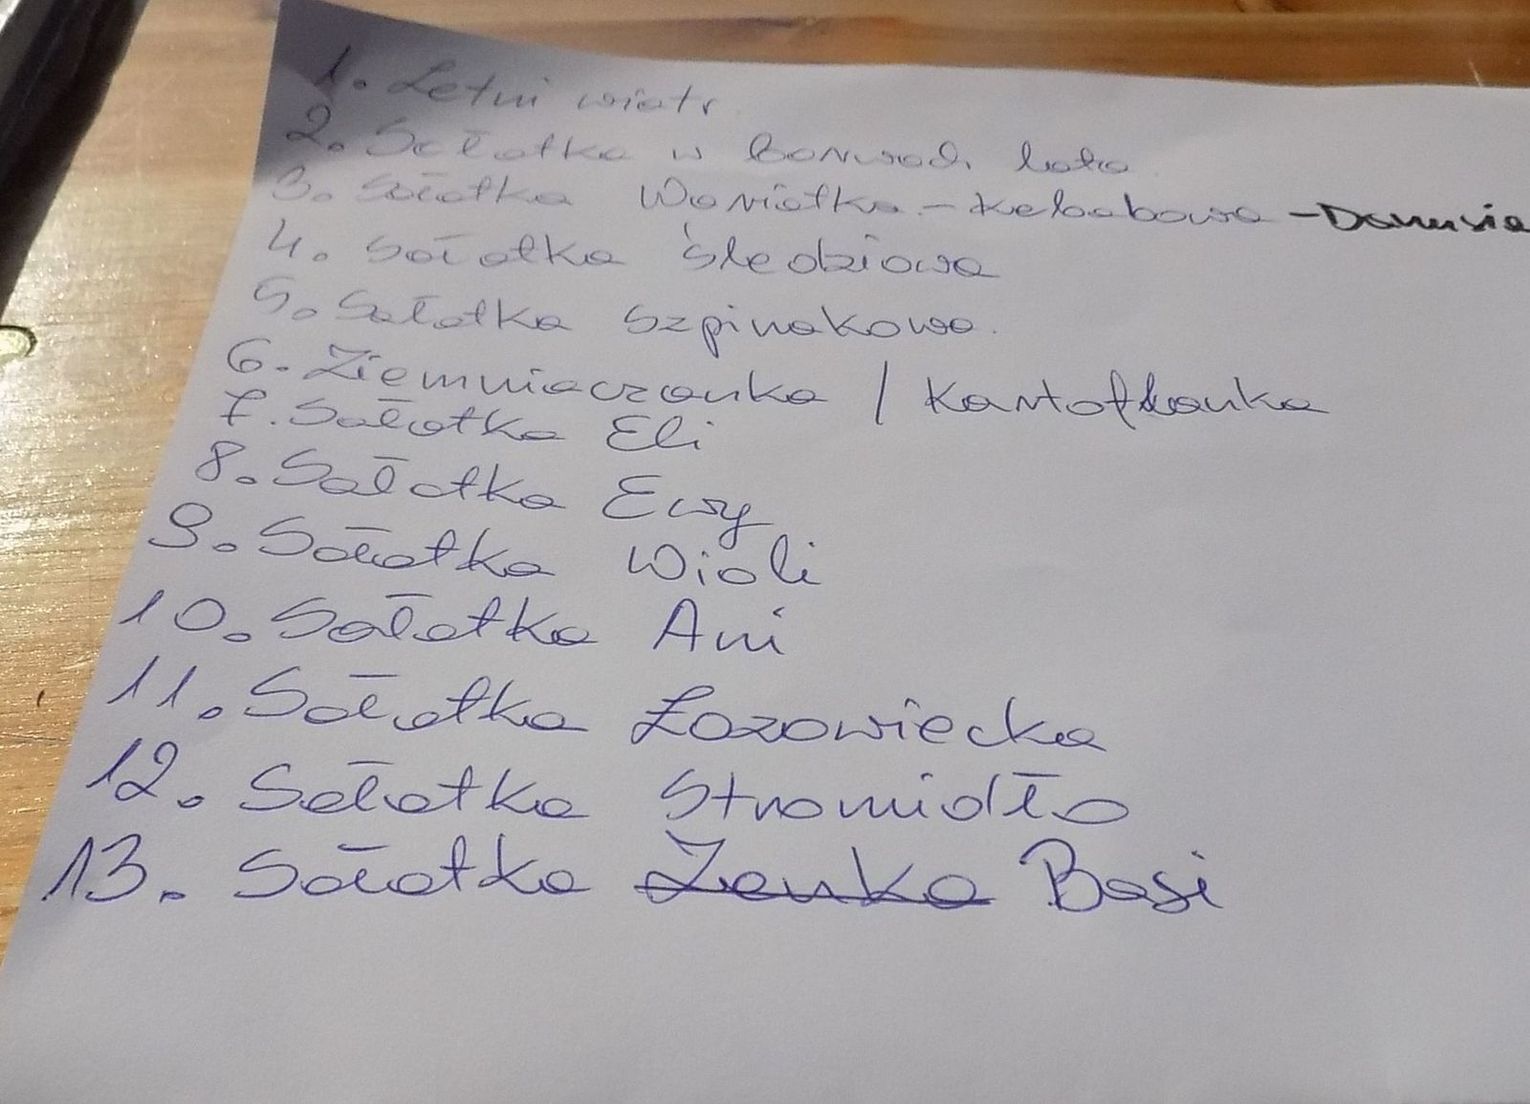 1. Letni wiatr
2. Sałatka w barwach lata
3. Sałatka Wariatka - Kebabowa - Danusia
4. Sałatka śledziowa
5. Sałatka szpinakowa.
6. Ziemniaczanka / Kartoflanka
7. Sałatka Eli
8. Sałatka Ewy
9. Sałatka Wioli
10. Sałatka Ani
11. Sałatka Łazowiecka
12. Sałatka Stramidło
13. Sałatka Zenka Basi